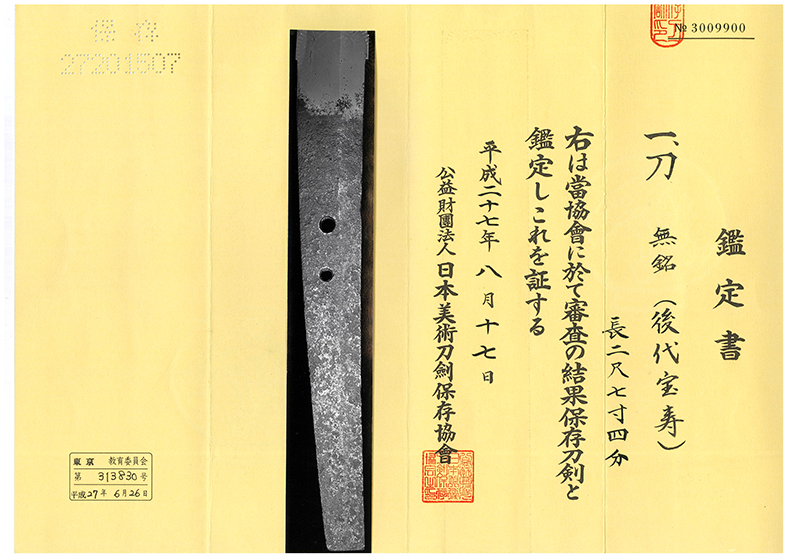 № 3009900
鑑定書
一、刀 無銘（後代宝寿）
長二尺七寸四分
右は當協會に於て審査の結果保存刀剣と
鑑定しこれを証する
平成二十七年八月十七日
公益財團法人 日本美術刀剣保存協會
保存
27201507
東京 教育委員会
第 313830 号
平成27年 6月26日